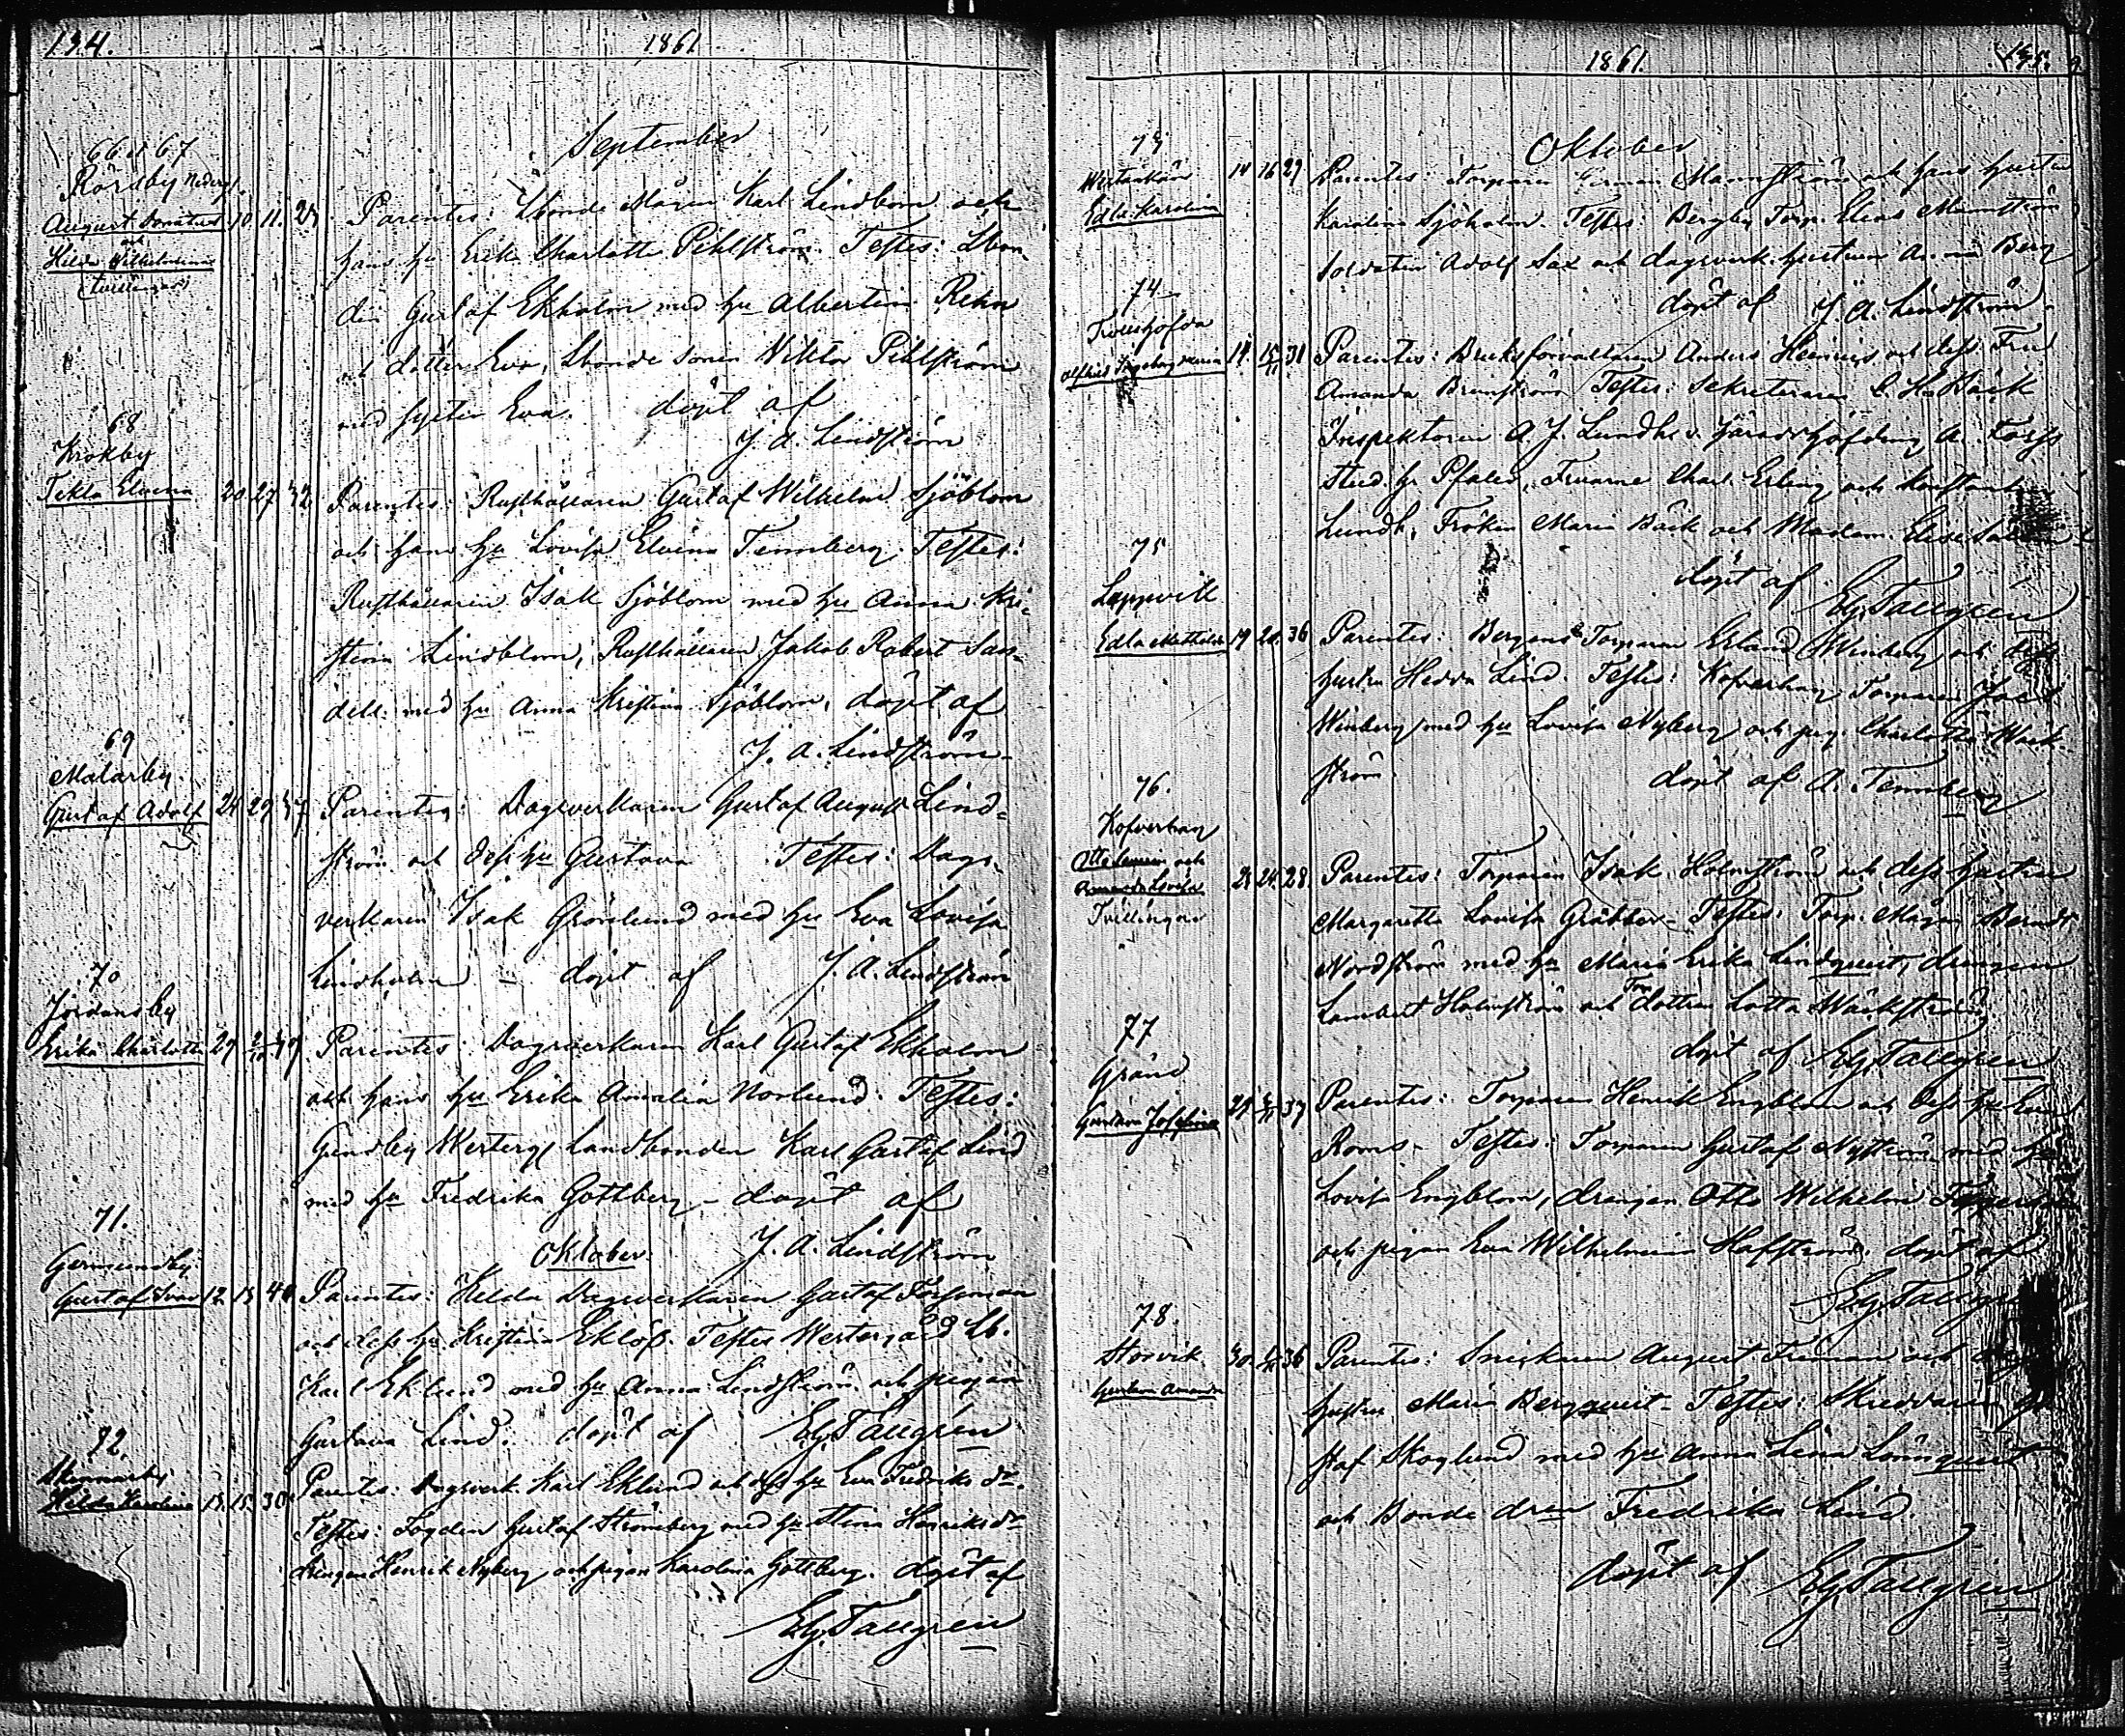 134.
1861
September
66 o 67
Rörsby Nederg.
August Donatus 10. 11. 24
och
Hilda Wilhelmina
(tvillingar)
Parentes: Lbonde Mågen Karl Lindbom och
hans hu Erika Charlotta Pihlström. Testes: Lbon-
den Gustaf Ekholm med hu Albertina Rehn
dotter Eva, Lbonde sonen Viktor Pihlström
med syster Eva. döpt af
J. A. Lindström
68
Krokby
Tekla Elvina 20 27 32
Parentes: Rusthållaren Gustaf Wilhelm Sjöblom
och hans hu Lovisa Elvina Tennberg. Testes:
Rusthållaren Isak Sjöblom med hu Anna Kri-
stina Lindblom, Rusthållaren Jakob Robert San-
dell med hu Anna Kristina Sjöblom, döpt af
J. A. Lindström
69
Malarby
Gustaf Adolf 24 29 37
Parentes: Dagsverkaren Gustaf August Lind-
ström och dess hu Gustava Testes: Dags-
verkaren Isak Grönlund med hu Eva Lovisa
Lindholm - döpt af J. A. Lindström
70
Jordansby
Erika Charlotta 29
Parentes: Dagsverkaren Karl Gustaf Ekholm
och hans hu Erika Amalia Norlund. Testes:
Gundby Westerg Landbonden Karl Gustaf Lind
med hu Fredrika Gottberg - döpt af
J. A. Lindström
Oktober.
71.
Germundby
Gustaf Ivar 12 13 40
Parentes: Dagsverkaren Gustaf Forsman
och dess hu Kristina Eklöf. Testes Westergård Lb.
Karl Eklund med hu Anna Lindström och pigan
Gustava Lind. döpt af Elg. Tallgren
72
Hilda Karolina 13. 15. 30
Parentes: Dagsverk. Karl Eklund och dess hu Eva Fredriks dr.
Testes: Fogden Gustaf Strömberg med hu Stina Henriks dr
drängen Henrik Nyberg och pigan Karolina Gottberg. döpt af
Elg. Tallgren
1861.
135.
Oktober
73
Westankärr
Edla Karolina 14 16 29
Parentes: Torparen Herman Mannström och hans hustru
Karolina Sjöholm. Testes: Bergby Torp. Elias Mannström
Soldaten Adolf Sax och dagsverk. hustrun Anna Berg
döpt af J. A. Lindström
74
Trollshofda
Ingeborg Maria 14. 31
Parentes: Bruksförvaltaren Anders Heinrigs och dess Fru
Amanda Brunström Testes: Sekreteraren C. H. Bäck
Inspektoren A. J. Lundh v. häradshöfding A. Forss
Stud. hr Pfaler, Fruarne Charl. Erling och
Lundh, Fröken Maria Bäck och Madam. Elise
döpt af
Elg. Tallgren
75
Lappvik
Edla Mathilda 19 20. 36
Parentes: Torparen Erland Winberg och dess
hustru Hedda Lind. Testes: Kofverhag Torparen
Winberg med hu Lovisa Nyberg och pig. Charlotta Wäck-
ström. döpt af A. Tennberg
76.
Kofverhag
Otto och
Lovisa
Tvillingar
24. 28.
Parentes: Torparen Isak Holmström och dess hustru
Margaretha Lovisa Gräbber - Testes: Torp. Mågen Berndt
Nordström med hu Maria Erika Lindquist, drängen
Lambert Holmström och Torp dottren Lotta Wäckström
döpt af Elg. Tallgren
77
Gränd
Gustava Josefina 24. 37
Parentes: Torparen Henrik Engblom och dess hu
Roms - Testes: Torparen Gustaf Nyström med hu
Lovisa Engblom, drängen Otto Wilhelm
och pigan Eva Wilhelmina Hafström. döpt af
Elg. Tallgren
78.
Storvik
Gustava Amanda 30. 36
Parentes: Snickaren August Friman och
hustru Maria Bergquist - Testes: Skreddaren Gu-
staf Skoglund med hu Anna Lena Lönnquist
och Bonde dren Fredrika Lind.
döpt af Elg. Tallgren